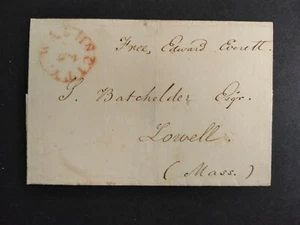 Free, Edward Everett.
S. Batchelder Esqr.
Lowell.
(Mass.)